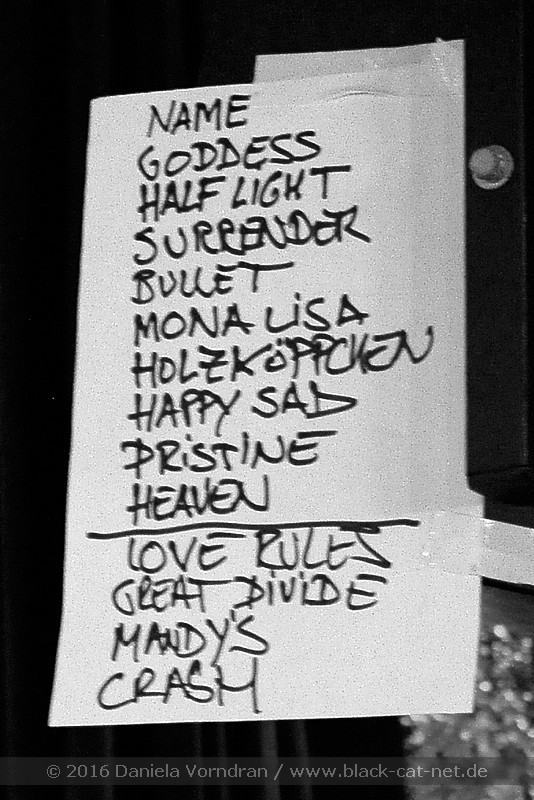 NAME
GODDESS
HALF LIGHT
SURRENDER
BULLET
MONA LiSA
HOLZKÖPPCHEN
HAPPY SAD
PRiSTiNE
HEAVEN
LOVE RULES
GREAT DiViDE
MANDY'S
CRASH
© 2016 Daniela Vorndran / www.black-cat-net.de